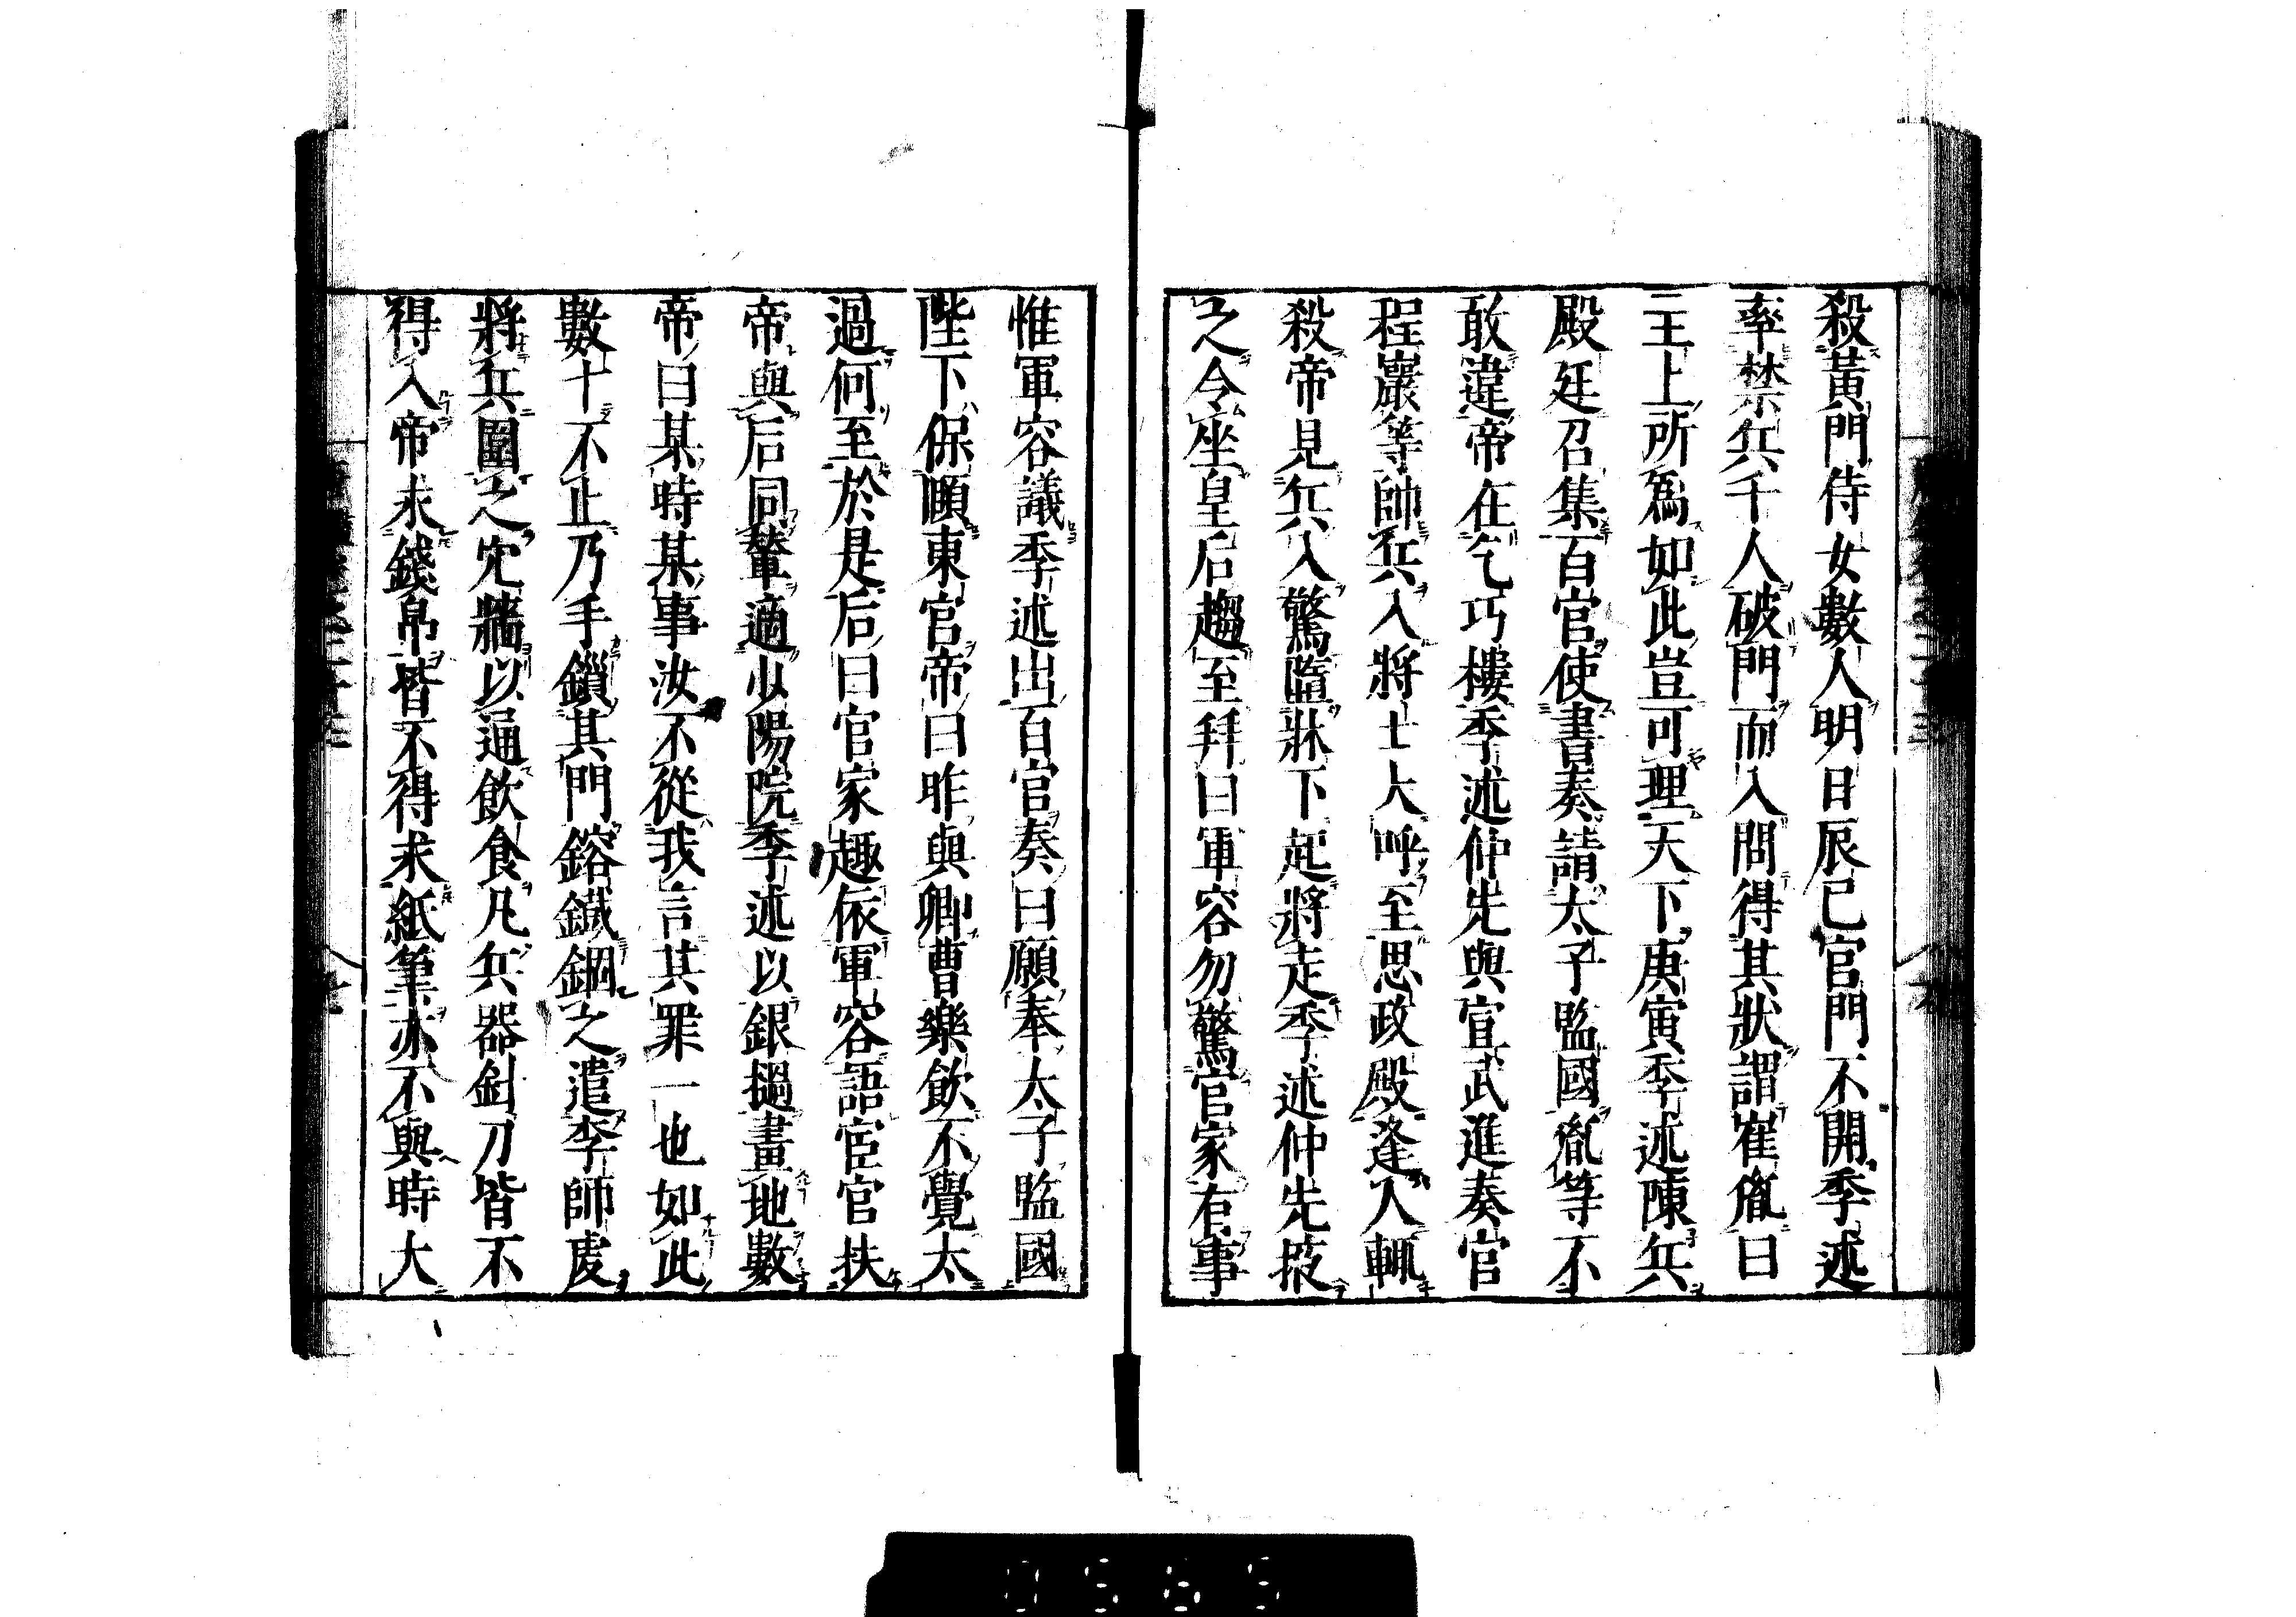 殺黃門侍女數人明日辰巳宮門不開季述
率禁兵千人破門而入問得其狀謂崔胤曰
主上所爲如此豈可理天下庚寅季述陳兵
殿廷召集百官使書奏請太子監國胤等不
敢違帝在乞巧樓季述仲先與宣武進奏官
程巖等帥兵入將士大呼至思政殿逢人輒
殺帝見兵入驚墮牀下起將走季述仲先掖
之令坐皇后趨至拜曰軍容勿驚官家有事
惟軍容議季述出百官奏曰願奉太子監國
陛下保頤東宮帝曰昨與卿曹樂飲不覺太
過何至於是后曰官家趣依軍容語宦官扶
帝與后同輦適少陽院季述以銀撾畫地數
帝曰某時某事汝不從我言其罪一也如此
數十不止乃手鎖其門鎔鐵錮之遣李師虔
將兵圍之穴牆以通飲食凡兵器針刀皆不
得入帝求錢帛皆不得求紙筆亦不與時大